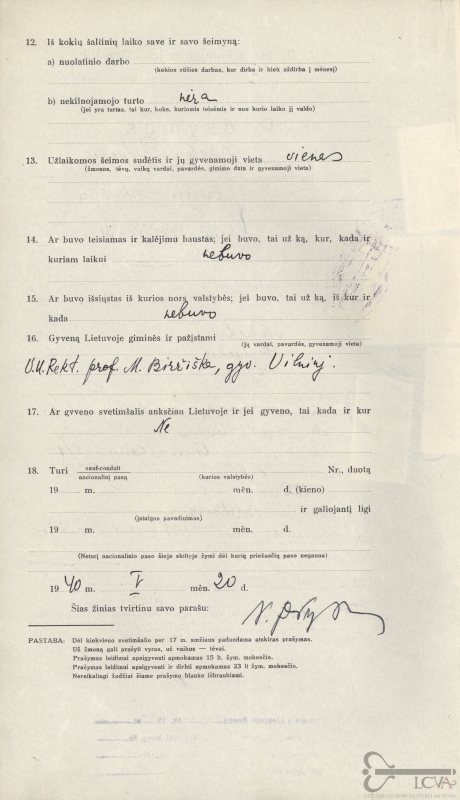 12. Iš kokių šaltinių laiko save ir savo šeimyną:
a) nuolatinio darbo
(kokios rūšies darbas, kur dirba ir kiek uždirba į mėnesį)
b) nekilnojamojo turto nėra
(jei yra turtas, tai kur, koks, kuriomis teisėmis ir nuo kurio laiko jį valdo)
13. Užlaikomos šeimos sudėtis ir jų gyvenamoji vieta vienas
(žmonos, tėvų, vaikų vardai, pavardės, gimimo data ir gyvenamoji vieta)
14. Ar buvo teisiamas ir kalėjimu baustas; jei buvo, tai už ką, kur, kada ir
kuriam laikui nebuvo
15. Ar buvo išsiųstas iš kurios nors valstybės; jei buvo, tai už ką, iš kur ir
kada nebuvo
16. Gyveną Lietuvoje giminės ir pažįstami
(jų vardai, pavardės, gyvenamoji vieta)
V.U. Rekt. prof. M. Biržiška, gyv. Vilniuj.
17. Ar gyveno svetimšalis anksčiau Lietuvoje ir jei gyveno, tai kada ir kur
Ne
18. Turi sauf-conduit Nr., duotą
nacionalinį pasą (kurios valstybės)
19 m. mėn. d. (kieno)
ir galiojantį ligi
(įstaigos pavadinimas)
19 m. mėn. d.
(Neturį nacionalinio paso šioje skiltyje žymi dėl kurių priežasčių paso negauna)
19 40 m. V mėn. 20 d.
Šias žinias tvirtinu savo parašu:
PASTABA: Dėl kiekvieno svetimšalio per 17 m. amžiaus paduodama atskiras prašymas.
Už žmoną gali prašyti vyras, už vaikus — tėvai.
Prašymas leidimui apsigyventi apmokamas 15 lt. žym. mokesčio.
Prašymas leidimui apsigyventi ir dirbti apmokamas 23 lt žym. mokesčio.
Nereikalingi žodžiai šiame prašymo blanke išbraukiami.
LCVA